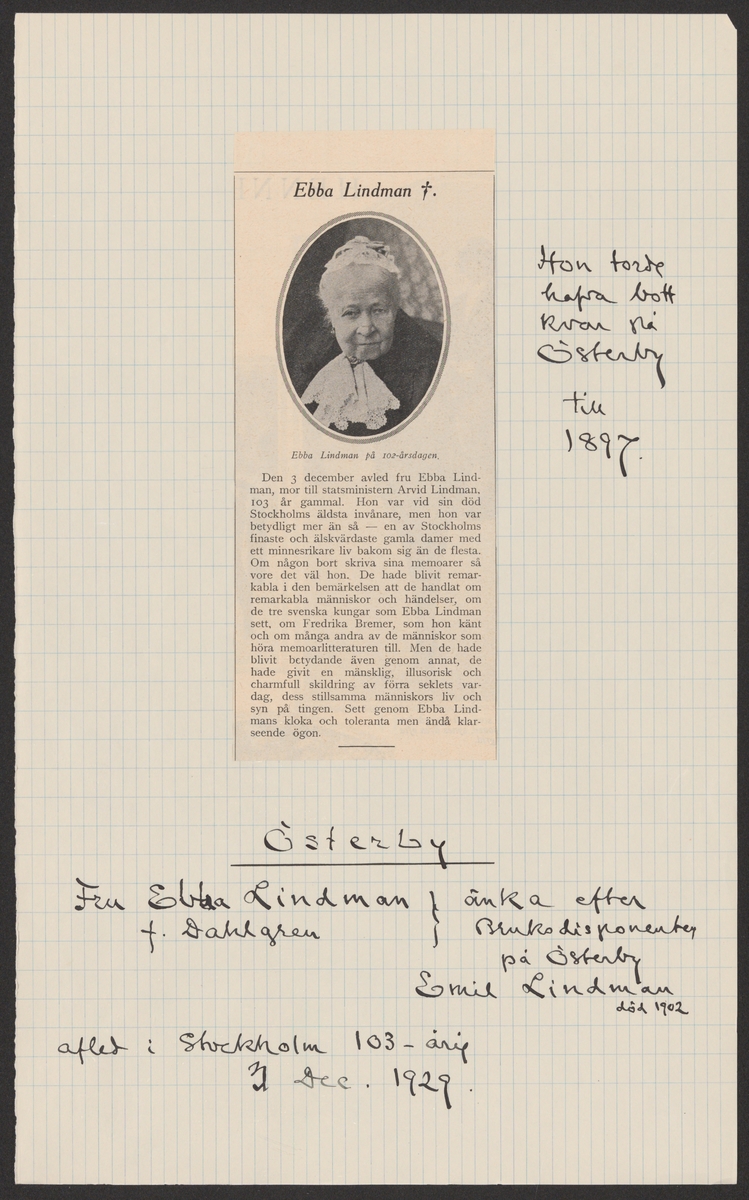 Ebba Lindman †.
Ebba Lindman på 102-årsdagen.
Den 3 december avled fru Ebba Lind-
man, mor till statsministern Arvid Lindman,
103 år gammal. Hon var vid sin död
Stockholms äldsta invånare, men hon var
betydligt mer än så — en av Stockholms
finaste och älskvärdaste gamla damer med
ett minnesrikare liv bakom sig än de flesta.
Om någon bort skriva sina memoarer så
vore det väl hon. De hade blivit remar-
kabla i den bemärkelsen att de handlat om
remarkabla människor och händelser, om
de tre svenska kungar som Ebba Lindman
sett, om Fredrika Bremer, som hon känt
och om många andra av de människor som
höra memoarlitteraturen till. Men de hade
blivit betydande även genom annat, de
hade givit en mänsklig, illusorisk och
charmfull skildring av förra seklets var-
dag, dess stillsamma människors liv och
syn på tingen. Sett genom Ebba Lind-
mans kloka och toleranta men ändå klar-
seende ögon.
Hon torde
hafva bott
kvar på
Österby
till
1897.
Österby
Fru Ebba Lindman } änka efter
f. Dahlgren Bruksdisponenten
på Österby
Emil Lindman
död 1902
afled i Stockholm 103-årig
3 Dec. 1929.